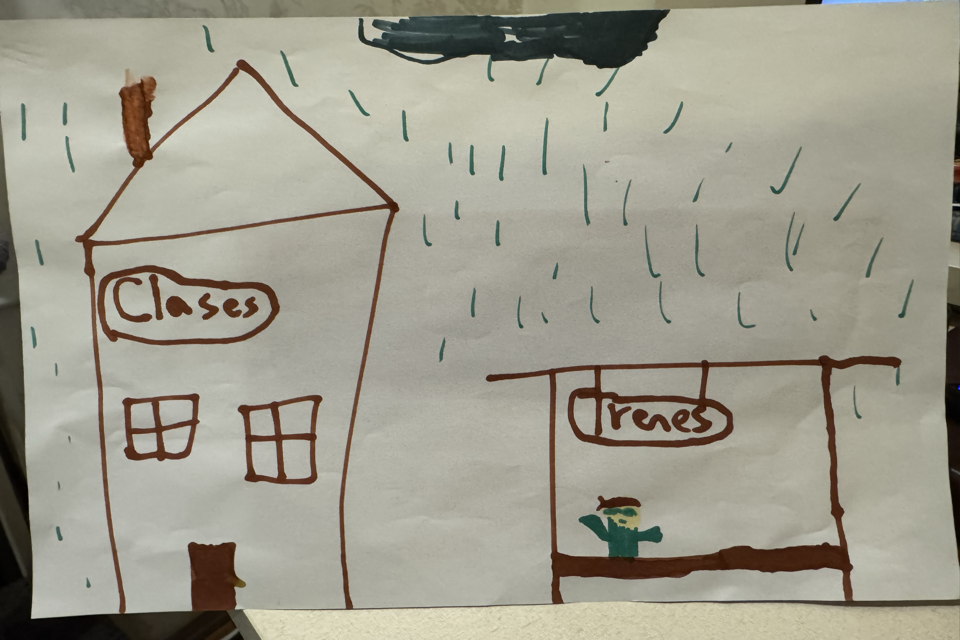 Clases
Trenes